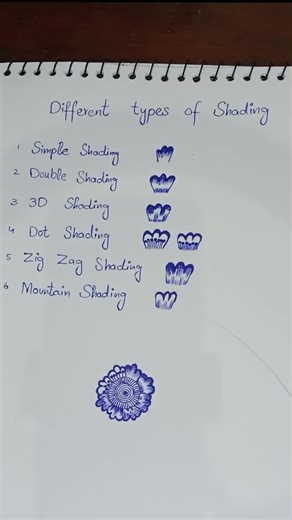 Different types of Shading
1 Simple Shading
2 Double Shading
3 3D Shading
4 Dot Shading
5 Zig Zag Shading
6 Mountain Shading